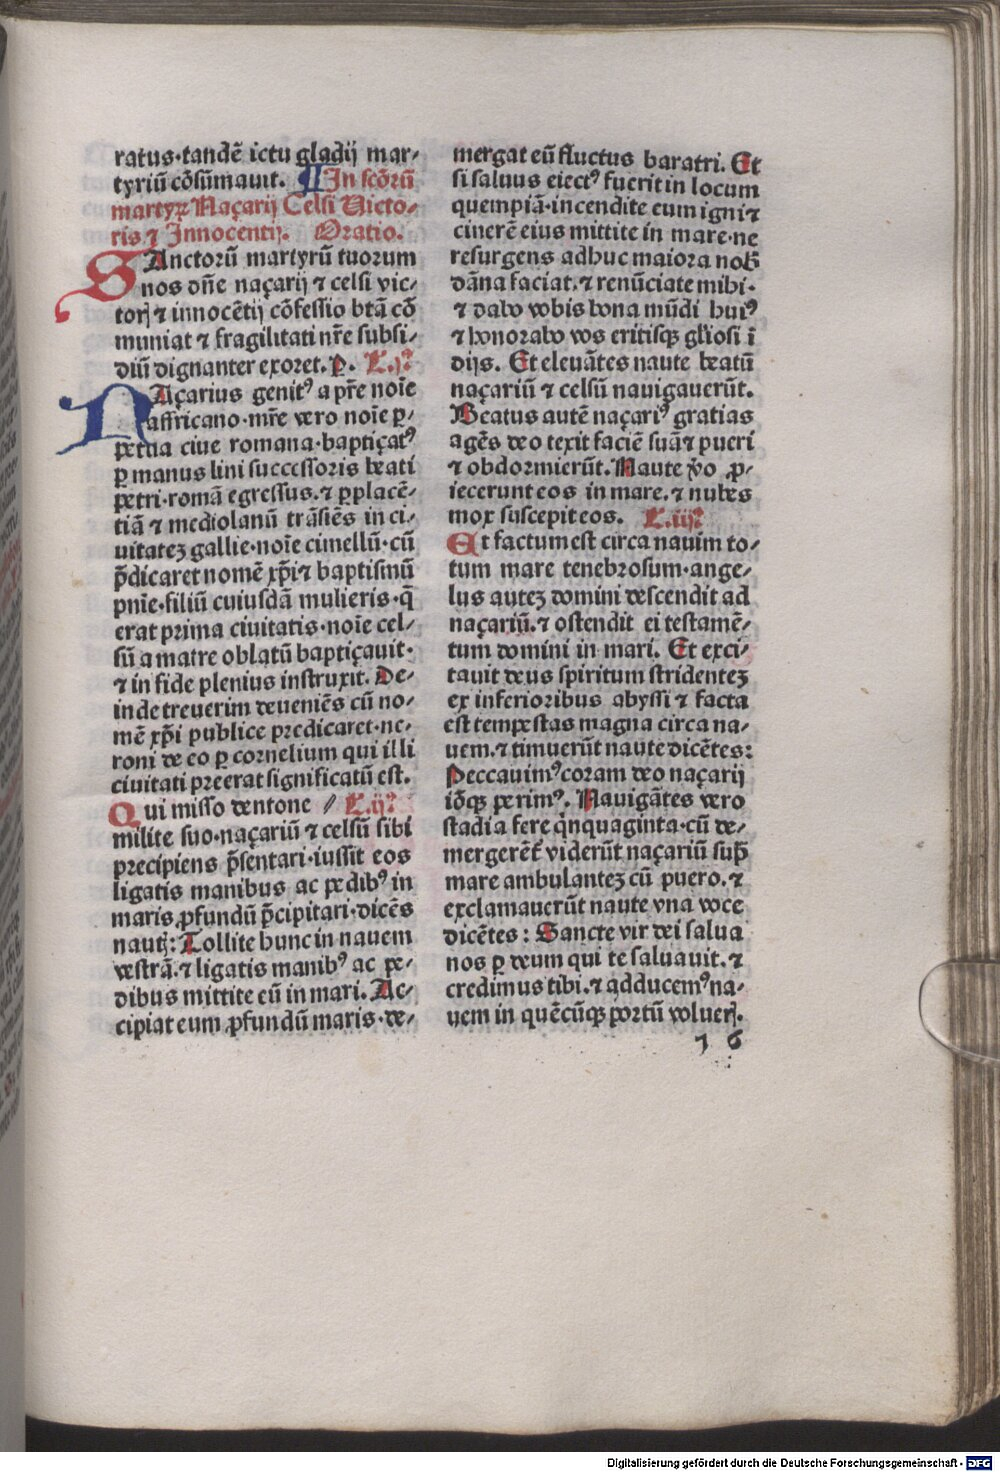 ratus·tandē ictu gladij mar⸗
tyriū cōsūmauit. ¶ In scōrū
martyꝝ Naçarij Celsi Uicto⸗
ris ⁊ Innocentij. Oratio.
SAnctorū martyrū tuorum
nos dn̄e naçarij ⁊ celsi vic⸗
torꝭ ⁊ innocētij cōfessio btā cō
muniat ⁊ fragilitati nr̄e subsi⸗
diū dignanter exoret. ꝑ. L.j.ͣ
NAçarius genitꝰ a pr̄e noīe
affricano·mr̄e vero noīe ꝑ⸗
petua ciue romana·baptiçatꝰ
ꝑ manus lini successoris beati
petri·romā egressus.⁊ ꝑ placē⸗
tiā ⁊ mediolanū trāsiēs in ci⸗
uitateꝫ gallie·noīe cimellū·cū
p̄dicaret nomē xp̄i ⁊ baptismū
pnīe·filiū cuiusdā mulieris·q̄
erat prima ciuitatis·noīe cel⸗
sū a matre oblatū baptiçauit·
⁊ in fide plenius instruxit. De⸗
inde treuerim deueniēs cū no⸗
mē xp̄i publice predicaret·ne⸗
roni de eo ꝑ cornelium qui illi
ciuitati preerat significatū est.
Qui misso dentone // L.ij.ͣ
milite suo·naçariū ⁊ celsū sibi
precipiens p̄sentari·iussit eos
ligatis manibus ac pedibꝰ in
maris ꝓfundū p̄cipitari·dicēs
nautꝭ: Tollite hunc in nauem
vestrā.⁊ ligatis manibꝰ ac pe⸗
dibus mittite eū in mari. Ac⸗
cipiat eum ꝓfundū maris·de⸗
mergat eū fluctus baratri. Et
si saluus eiectꝰ fuerit in locum
quempiā·incendite eum igni ⁊
cinerē eius mittite in mare·ne
resurgens adhuc maiora nob̄
dāna faciat.⁊ renūciate mihi·
⁊ dabo vobis bona mūdi huiꝰ
⁊ honorabo vos eritisqꝫ gl̄iosi ī
dijs. Et eleuātes naute beatū
naçariū ⁊ celsū nauigauerūt.
Beatus autē naçariꝰ gratias
agēs deo texit faciē suā ⁊ pueri
⁊ obdormierūt. Naute v̄o ꝓ⸗
iecerunt eos in mare.⁊ nubes
mox suscepit eos. L.iij.ͣ
Et factum est circa nauim to⸗
tum mare tenebrosum·ange⸗
lus auteꝫ domini descendit ad
naçariū.⁊ ostendit ei testamē⸗
tum domini in mari. Et exci⸗
tauit deus spiritum stridenteꝫ
ex inferioribus abyssi ⁊ facta
est tempestas magna circa na⸗
uem.⁊ timuerūt naute dicētes:
Peccauimꝰ coram deo naçarij
iōqꝫ perimꝰ. Nauigātes vero
stadia fere qͥnquaginta·cū de⸗
mergerēt᷑ viderūt naçariū sup̄
mare ambulanteꝫ cū puero.⁊
exclamauerūt naute vna voce
dicētes: Sancte vir dei salua
nos ꝑ deum qui te saluauit.⁊
credimus tibi.⁊ adducemꝰ na⸗
uem in quēcūqꝫ portū volueꝭ.
1 6
Digitalisierung gefördert durch die Deutsche Forschungsgemeinschaft - DFG